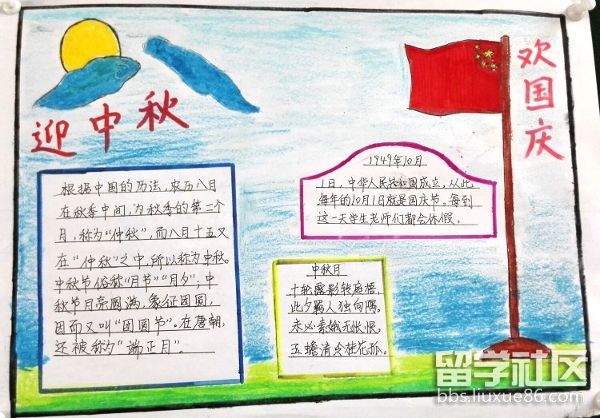 迎中秋
欢国庆
根据中国的历法，农历八月
在秋季中间，为秋季的第二个
月，称为“仲秋”，而八月十五又
在“仲秋”之中，所以称为中秋。
中秋节俗称“月节”“月夕”，中
秋节月亮圆满，象征团圆，
因而又叫“团圆节”。在唐朝，
还被称为“端正月”。
1949年10月
1日，中华人民共和国成立，从此
每年的10月1日就是国庆节。每到
这一天学生老师们都会休假。
中秋月
十轮霜影转庭梧，
此夕羁人独向隅。
未必素娥无怅恨，
玉蟾清冷桂花孤。
留学社区
bbs.liuxue86.com